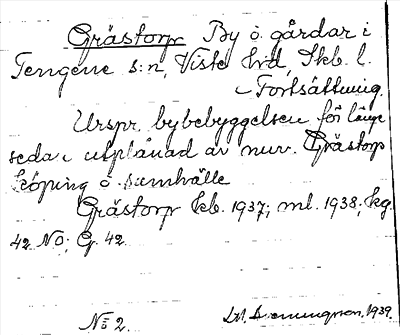 Grästorp By o. gårdar i
Tengene s:n, Viste hrd, Skb. l.
Fortsättning.
Urspr. bybebyggelsen för länge
sedan utplånad av nuv. Grästorp
köping o. samhälle
Grästorp kb. 1937; ml. 1938; kg.
42 NO; G. 42.
No 2. 1939.